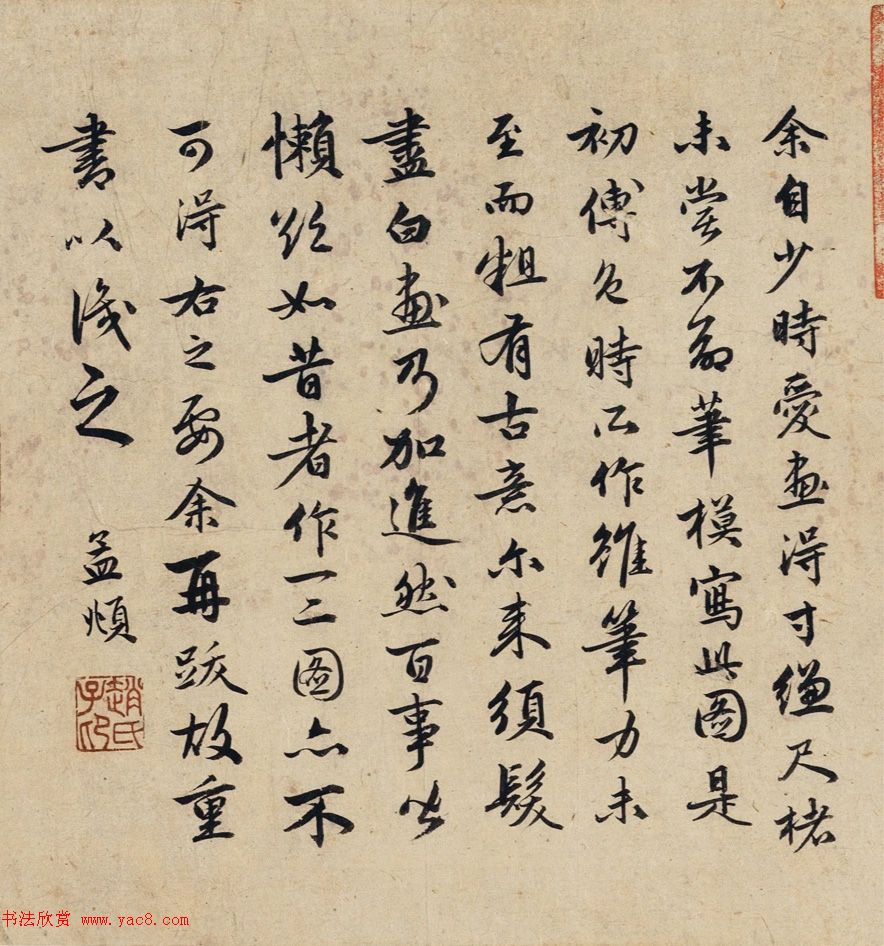 余自少時愛畫得寸縑尺楮
未嘗不命筆模寫此圖是
初傅色時所作雖筆力未
至而粗有古意尔来須髮
盡白畫乃加進然百事皆
懶欲如昔者作一二圖亦不
可得右之要余再跋故重
書以識之 孟頫
趙氏子昂
书法欣赏 www.yac8.com